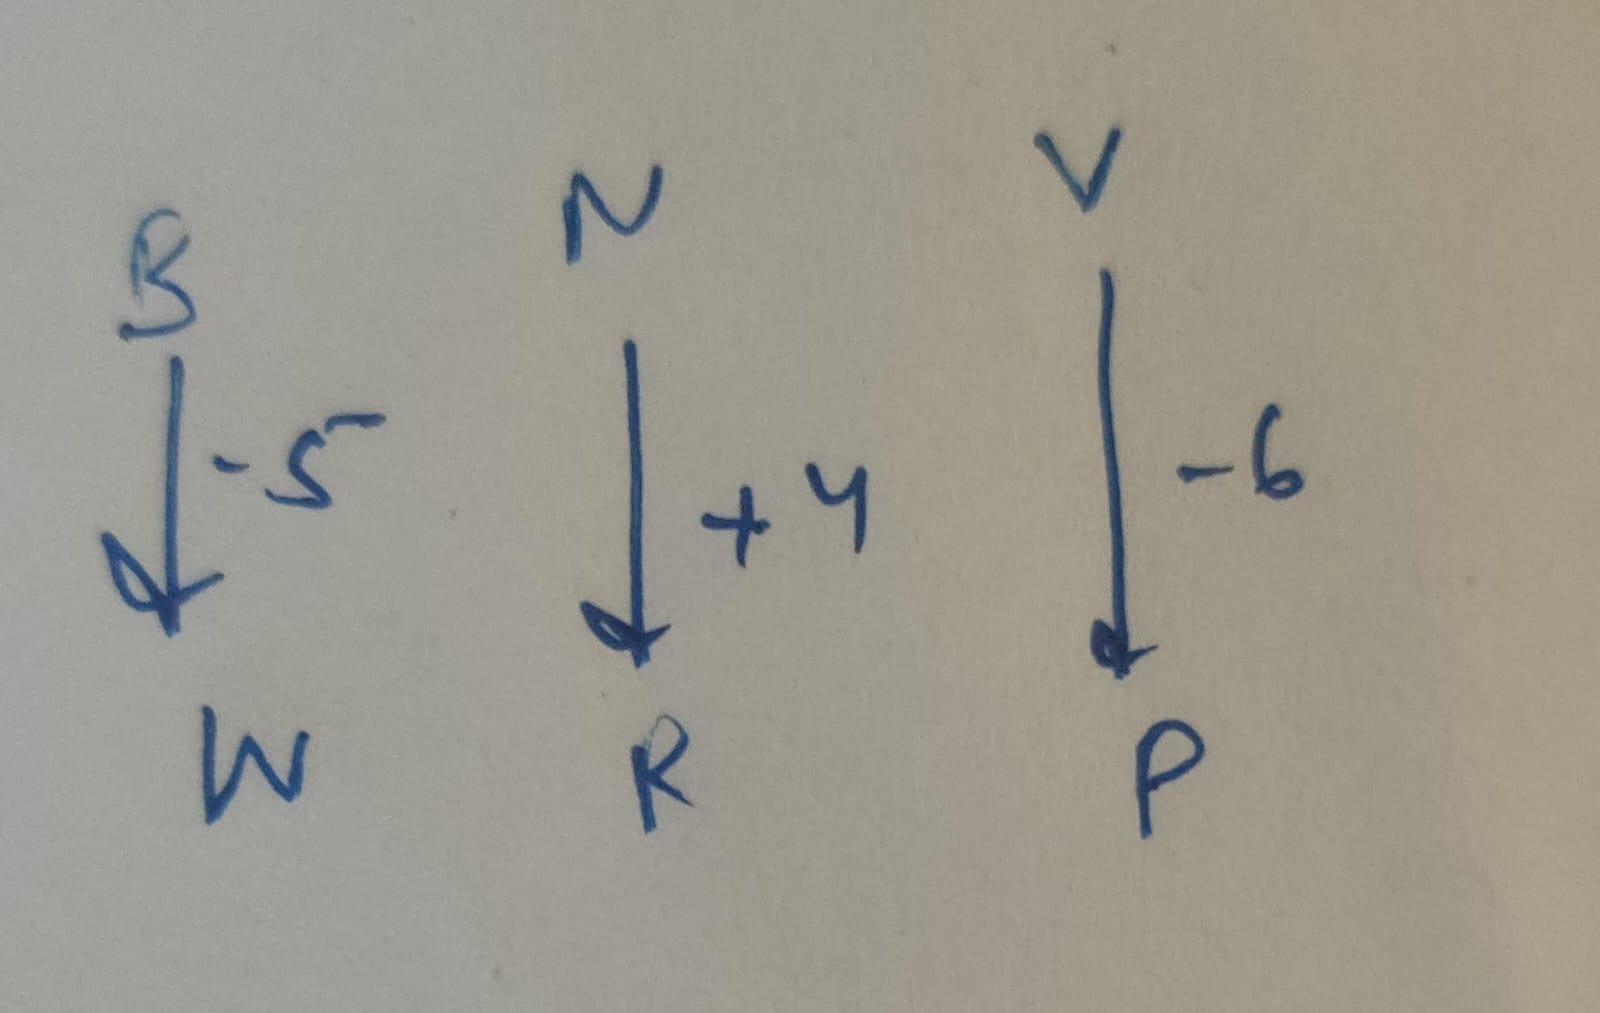 B N V
-5 +4 -6
W R P